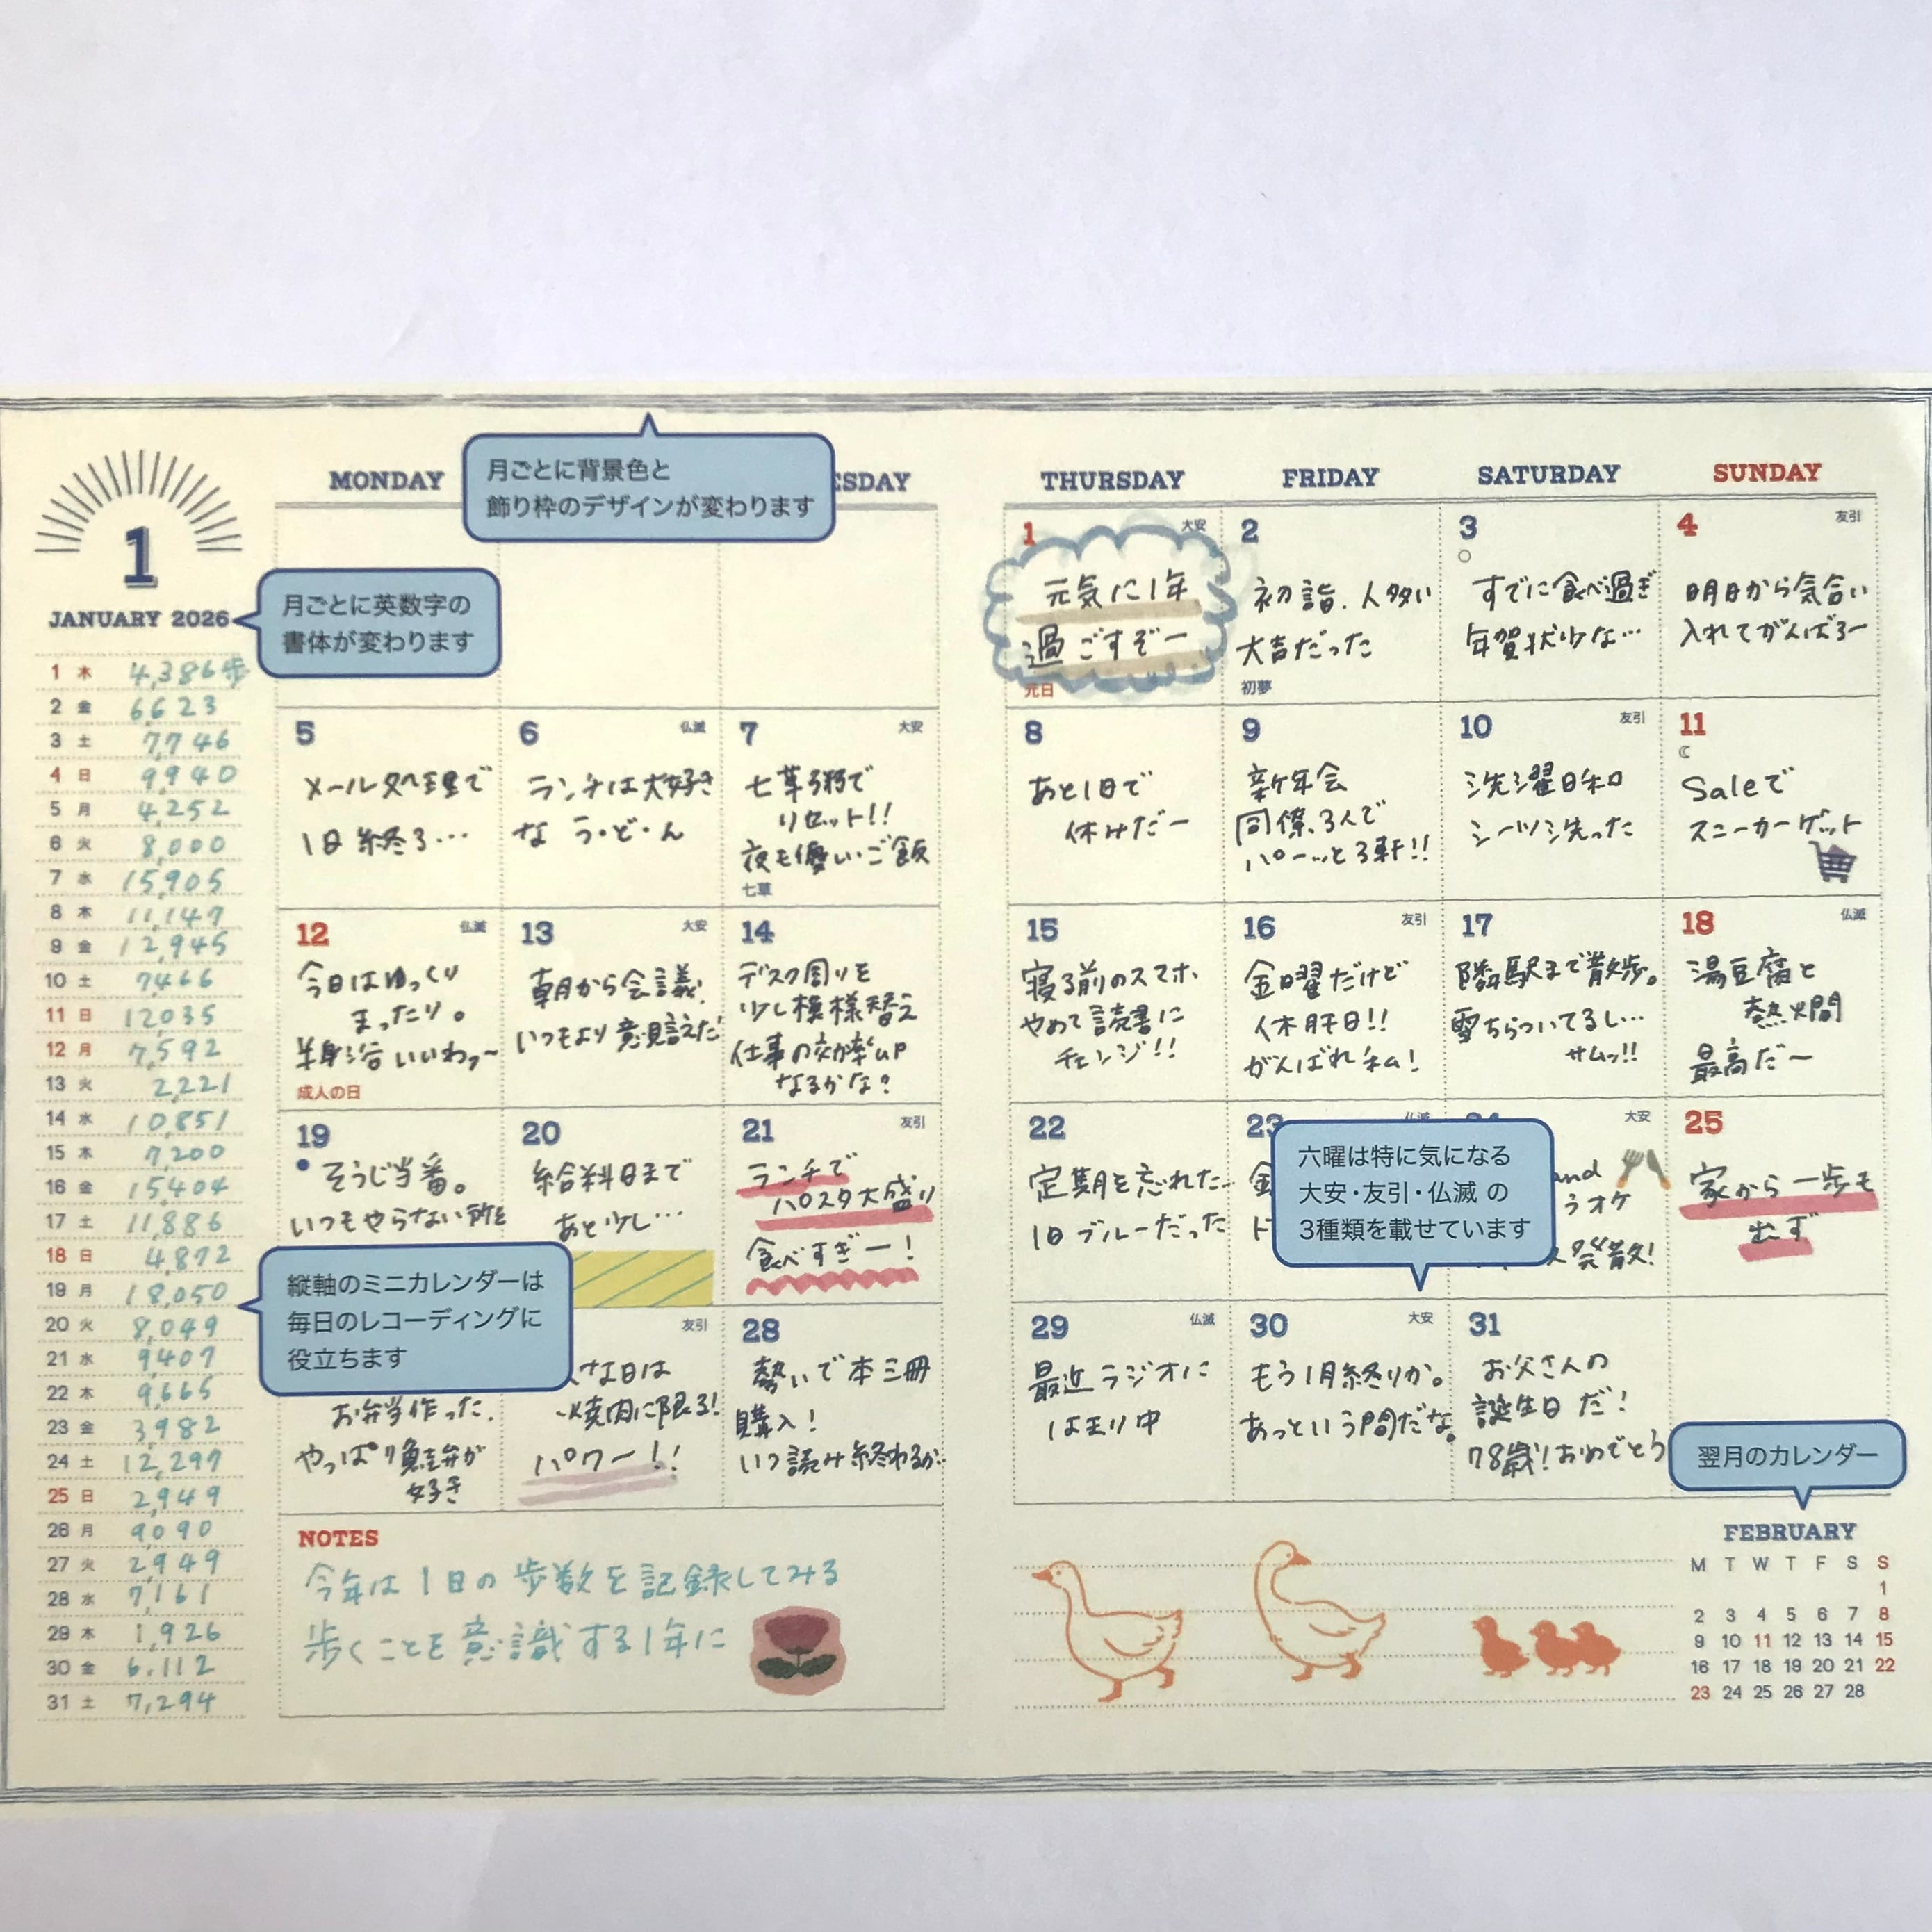 月ごとに背景色と
飾り枠のデザインが変わります
1
JANUARY 2026
月ごとに英数字の
書体が変わります
1 木 4,386歩
2 金 6623
3 土 7,746
4 日 9,940
5 月 4,252
6 火 8,000
7 水 15,905
8 木 11,147
9 金 12,945
10 土 7466
11 日 12035
12 月 7,592
13 火 2,221
14 水 10,851
15 木 7,200
16 金 15,404
17 土 11,886
18 日 4,872
19 月 18,050
20 火 8,049
21 水 9407
22 木 9,665
23 金 3,982
24 土 12,297
25 日 2,949
26 月 9090
27 火 2,949
28 水 7,161
29 木 1,926
30 金 6,112
31 土 7,294
縦軸のミニカレンダーは
毎日のレコーディングに
役立ちます
MONDAY
SDAY
THURSDAY
FRIDAY
SATURDAY
SUNDAY
1 大安
元気に1年
過ごすぞー
元日
2
初詣、人多い
大吉だった
初夢
3
すでに食べ過ぎ
年賀状少な…
4 友引
明日から気合い
入れてがんばろー
5
メール処理で
1日終る…
6 仏滅
ランチは大好き
な う・ど・ん
7 大安
七草粥で
リセット!!
夜も優しいご飯
七草
8
あと1日で
休みだー
9
新年会
同僚3人で
パーッと3軒!!
10 友引
洗濯日和
シーツ洗った
11
Saleで
スニーカーゲット
12 仏滅
今日はゆっくり
まったり。
半身浴いいわァ〜
成人の日
13 大安
朝から会議
いつもより意見言えた
14
デスク周りを
少し模様替え
仕事の効率up
なるかな?
15
寝る前のスマホ
やめて読書に
チェンジ!!
16 友引
金曜だけど
休肝日!!
がんばれ私!
17
隣駅まで散歩。
雪ちらついてるし…
サムッ!!
18 仏滅
湯豆腐と
熱燗
最高だ〜
19
そうじ当番。
いつもやらない所を
20
給料日まで
あと少し…
21 友引
ランチで
パスタ大盛り
食べすぎー!
22
定期を忘れた…
1日ブルーだった
23
大安
and
うオケ
発散!
六曜は特に気になる
大安・友引・仏滅 の
3種類を載せています
25
家から一歩も
出ず
お弁当作った。
やっぱり鮭弁が
好き
友引
な日は
焼肉に限る!
パワー!!
28
勢いで本三冊
購入!
いつ読み終わるか…
29 仏滅
最近ラジオに
はまり中
30 大安
もう1月終りか。
あっという間だな。
31
お父さんの
誕生日だ!
78歳!おめでとう
翌月のカレンダー
NOTES
今年は1日の歩数を記録してみる
歩くことを意識する1年に
FEBRUARY
M T W T F S S
1
2 3 4 5 6 7 8
9 10 11 12 13 14 15
16 17 18 19 20 21 22
23 24 25 26 27 28